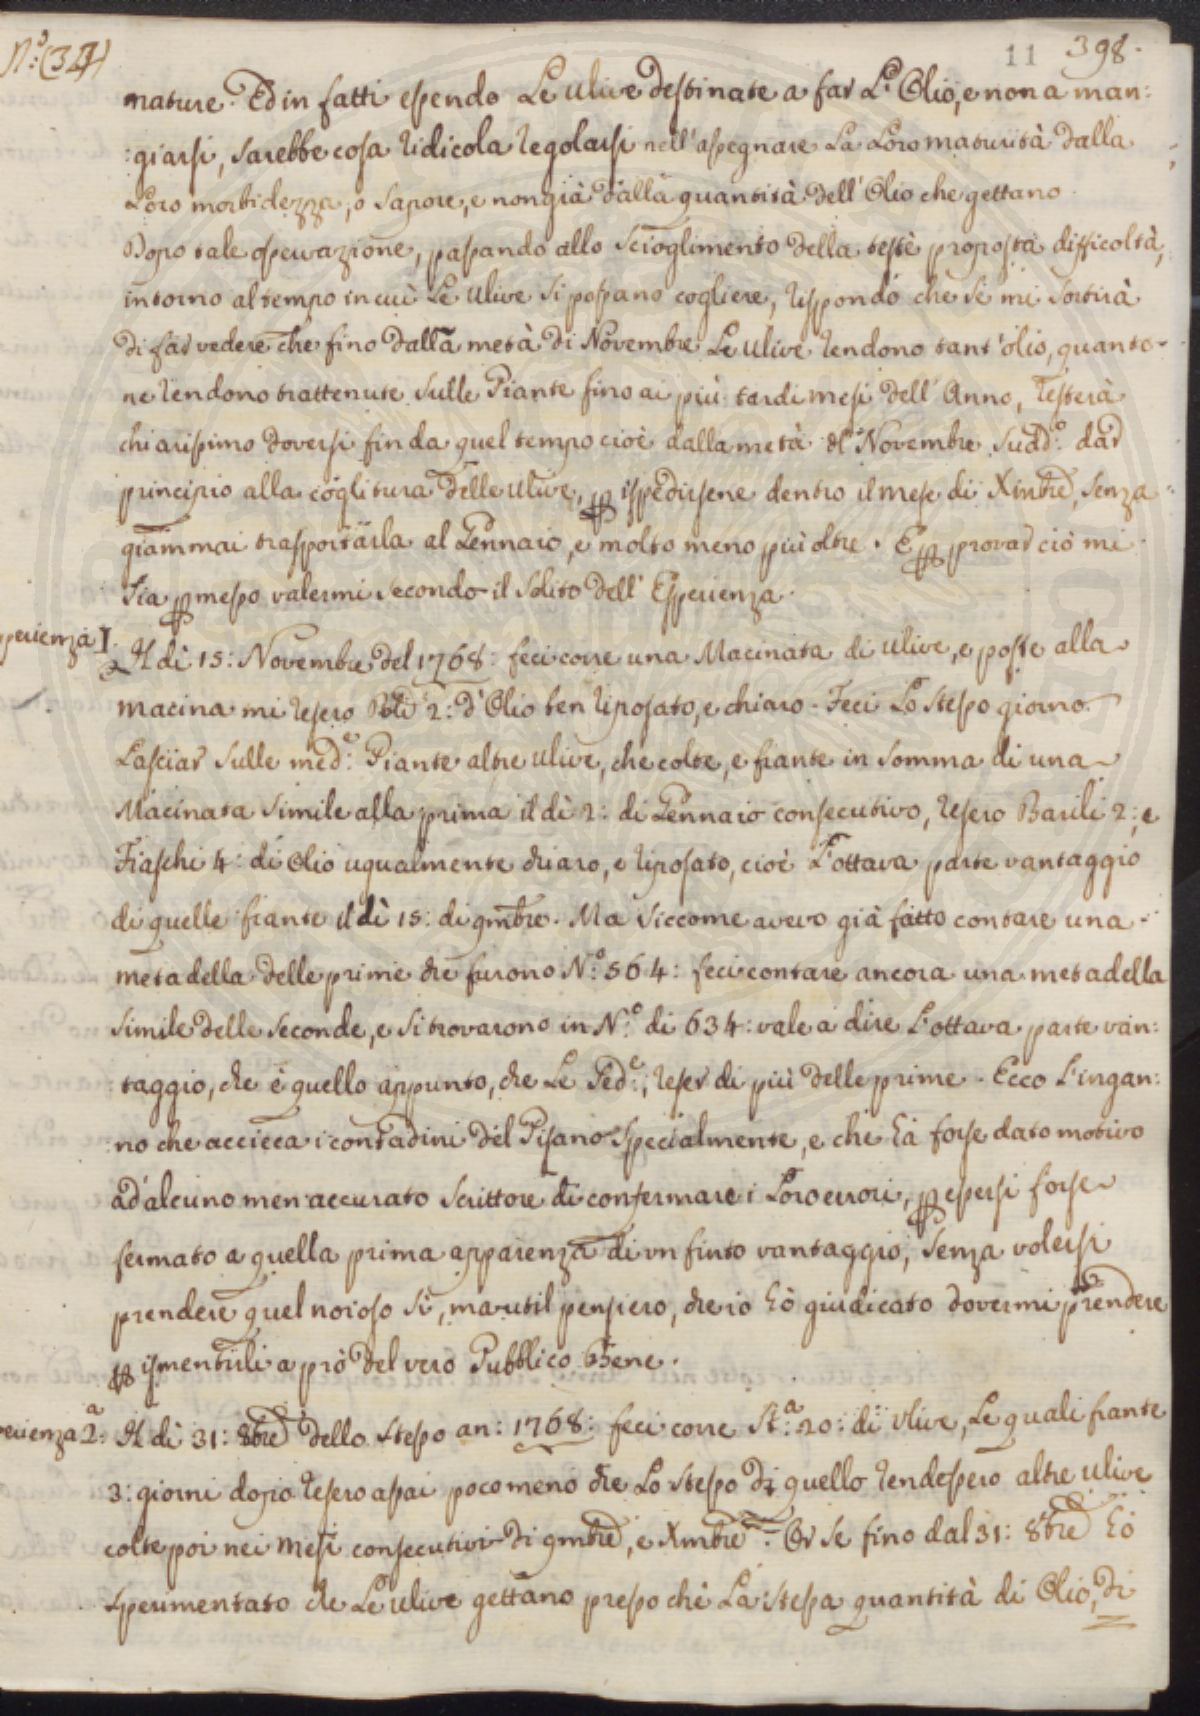 N.º (34)
11 398.
mature. Ed in fatti essendo Le ulive destinate a far L'Olio, e non a man:
:giarsi, sarebbe cosa ridicola regolarsi nell'assegnare La Loro maturità dalla
Loro morbidezza, o sapore, e non già dalla quantità dell'Olio che gettano.
Dopo tale osservazione, passando allo scioglimento della testè proposta difficoltà,
intorno al tempo in cui Le ulive si possano cogliere, rispondo che se mi sortirà
di far vedere che fino dalla metà di Novembre Le ulive rendono tant'olio, quanto
ne rendono trattenute sulle Piante fino ai più tardi mesi dell'Anno, resterà
chiarissimo doversi fin da quel tempo cioè dalla metà di Novembre sudd.º dar
principio alla coglitura delle ulive, p ispedirsene dentro il mese di Xmbre, senza
giammai trasportarla al Gennaio, e molto meno più oltre. E p provar ciò mi
sia pmesso valermi secondo il solito dell'Esperienza.
perienza I. Il dì 15: Novembre del 1768: feci corre una Macinata di ulive, e poste alla
macina mi resero Bli 2: d'Olio ben riposato, e chiaro. Feci Lo stesso giorno
Lasciar sulle med.e Piante altre ulive, che colte, e frante in somma di una
Macinata simile alla prima il dì 2: di Gennaio consecutivo, resero Barili 2; e
Fiaschi 4: di Olio ugualmente chiaro, e riposato, cioè L'ottava parte vantaggio
di quelle frante il dì 15: di 9mbre. Ma siccome avevo già fatto contare una
metadella delle prime che furono N.º 564: feci contare ancora una metadella
simile delle seconde, e si trovarono in N.º di 634: vale a dire L'ottava parte van:
:taggio, che è quello appunto, che Le Sed.e, reser di più delle prime. Ecco L'ingan:
:no che acceca i contadini del Pisano specialmente, e che hà forse dato motivo
ad alcuno men accurato scrittore di confermare i Loro errori, p essersi forse
fermato a quella prima apparenza di un finto vantaggio, senza volersi
prendere quel noioso sì, ma util pensiero, che io hò giudicato dovermi prendere
p ismentirli a prò del vero Pubblico Bene.
erienza 2.a Il dì 31: 8bre dello stesso an: 1768: feci corre St.a 20: di ulive, Le quali frante
3: giorni dopo resero assai poco meno che Lo stesso di quello rendessero altre ulive
colte poi nei mesi consecutivi di 9mbre, e Xmbre. Or se fino dal 31: 8bre hò
sperimentato che Le ulive gettano presso chè La stessa quantità di Olio, di